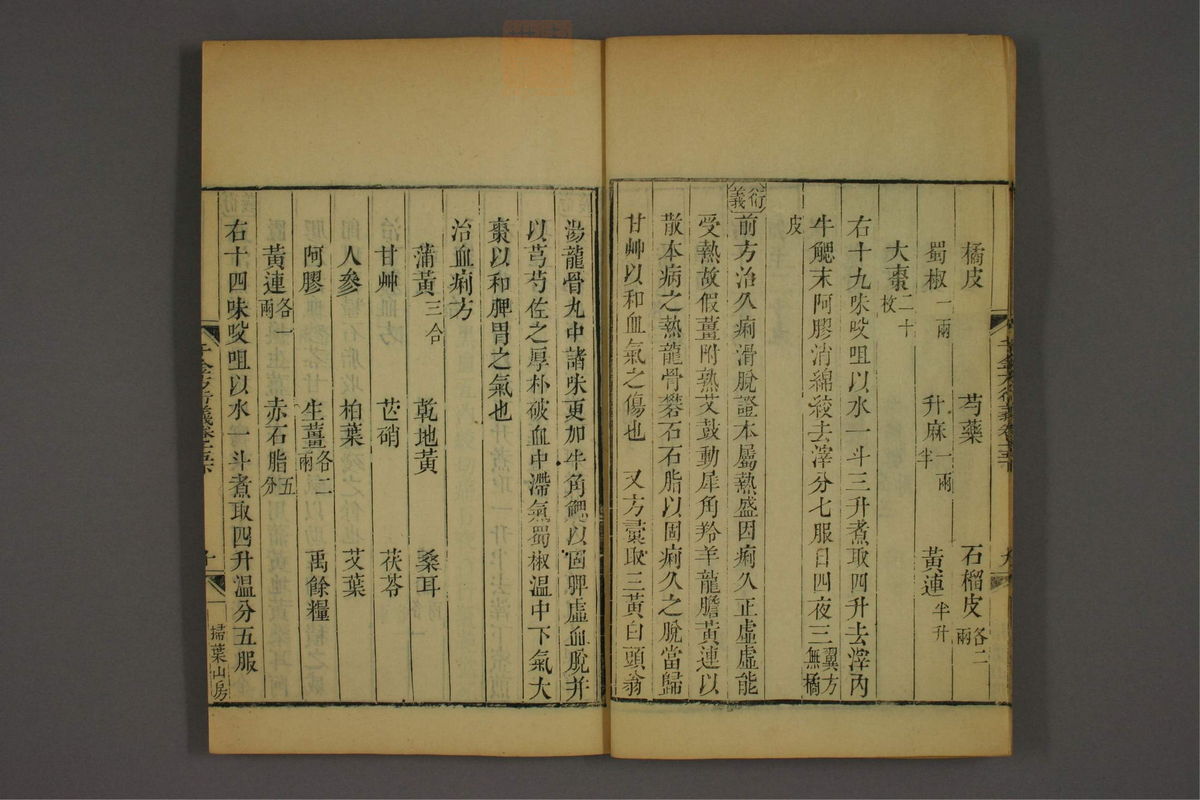 橘皮　芍藥　石榴皮各二兩
蜀椒一兩　升麻一兩半　黃連半升
大棗二十枚
右十九味㕮咀以水一斗三升煮取四升去滓內
牛䚡末阿膠消綿絞去滓分七服日四夜三翼方無橘
皮
衍義　前方治久痢滑脫證本屬熱盛因痢久正虛虛能
受熱故假薑附熟艾鼓動犀角羚羊龍膽黃連以
散本病之熱龍骨礬石石脂以固痢久之脫當歸
甘艸以和血氣之傷也　又方彙取三黃白頭翁
湯龍骨丸中諸味更加牛角䚡以固脾虛血脫并
以芎芍佐之厚朴破血中滯氣蜀椒溫中下氣大
棗以和脾胃之氣也
治血痢方
蒲黃三合　乾地黃　桑耳
甘艸　芒硝　茯苓
人參　柏葉　艾葉
阿膠　生薑各二兩　禹餘糧
黃連各一兩　赤石脂五分
右十四味㕮咀以水一斗煮取四升溫分五服
千金方衍義卷十五下　十
掃葉山房